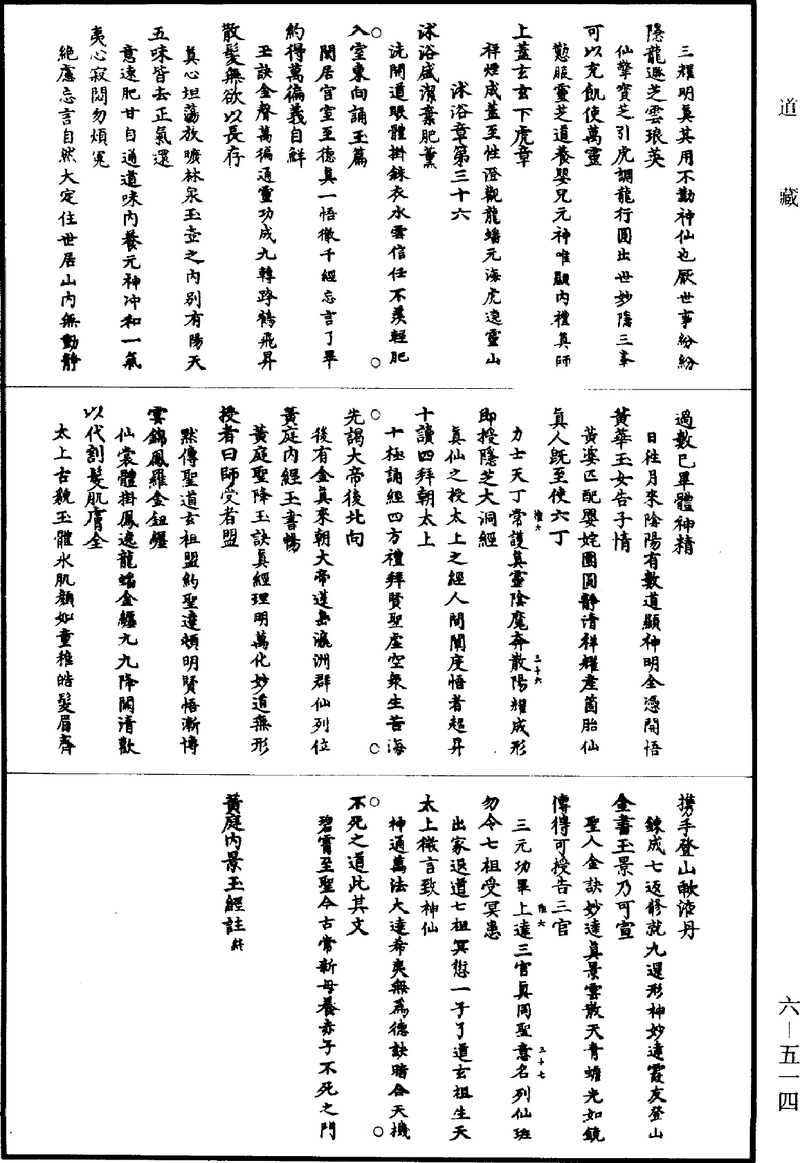 道藏
三耀明真其用不勤神仙也厭世事紛紛
隱龍遯芝雲琅英
仙擎寶芝引虎調龍行圓出世妙隱三峯
可以充飢使萬靈
懃服靈芝道養嬰兒元神唯顯內禮真師
上蓋玄玄下虎章
祥煙成蓋至性澄觀龍蟠元海虎遶靈山
沐浴章第三十六
沐浴盛潔棄肥薰
洗開道眼體掛銖衣水雲信任不羨輕肥
入室東向誦玉篇
閑居官室至德真一悟徹千經忘言了畢
約得萬徧義自鮮
玉訣金聲萬徧通靈功成九轉跨鶴飛昇
散髮無欲以長存
真心坦蕩放曠林泉玉壺之內別有陽天
五味皆去正氣還
意遠肥甘自通道味內養元神冲和一氣
夷心寂悶勿煩冤
絶慮忘言自然大定住世居山內無動靜
過數已畢體神精
日往月來陰陽有數道顯神明全憑開悟
黃華玉女告子情
黃婆匹配嬰姹團圓靜清祥耀產箇胎仙
真人旣至使六丁
力士天丁常護真靈陰魔奔散陽耀成形
即授隱芝大洞經
真仙之授太上之經人間闡度悟者超昇
十讀四拜朝太上
十極誦經四方禮拜賢聖虛空衆生苦海
先謁大帝後北向
後有金真來朝大帝蓬島瀛洲群仙列位
黃庭內經玉書暢
黃庭聖降玉訣真經理明萬化妙道無形
授者曰師受者盟
默傳聖道玄祖盟約聖達頓明賢悟漸博
雲錦鳳羅金鈕纏
仙裳體掛鳳遶龍蟠金纏九九降闕清歡
以代割髮肌膚全
太上古貌玉體氷肌顏如童稚皓髮眉齊
攜手登山歃液丹
鍊成七返修就九還形神妙達霞友登山
金書玉景乃可宣
聖人金訣妙達真景雲散天青蟾光如鏡
傳得可授告三官
三元功畢上達三官真同聖意名列仙班
勿令七祖受冥患
出家退道七祖冥愆一子了道玄祖生天
太上微言致神仙
神通萬法大達希夷無為德訣暗合天機
不死之道此其文
碧霄至聖今古常新母養赤子不死之門
黃庭內景玉經註終
六－五一四